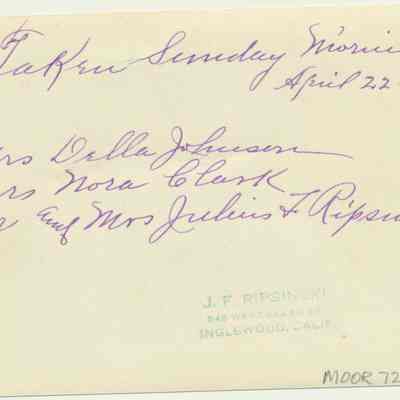 Taken Sunday Morni
April 22
rs Della Johnson
rs Nora Clark
r and Mrs Julius F Ripsin
J. F. RIPSINSKI
INGLEWOOD, CALIF.
MOOR 72